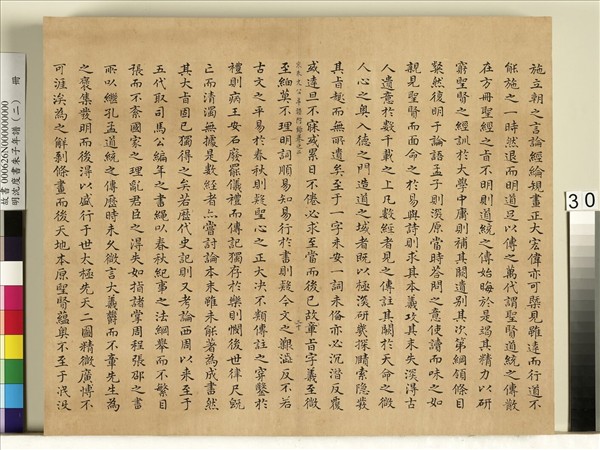 施立朝之言論經綸規畫正大宏偉亦可槩見雖達而行道不
能施之一時然退而明道足以傳之萬代謂聖賢道統之傳散
在方冊聖經之旨不明則道統之傳始晦於是竭其精力以研
窮聖賢之經訓於大學中庸則補其闕遺別其次第綱領條目
粲然復明于論語孟子則深原當時答問之意使讀而味之如
親見聖賢而面命之於易與詩則求其本義攻其末失深得古
人遺意於數千載之上凡數經者見之傳註其關於天命之微
人心之奧入德之門造道之域者既以極深研幾探賾索隱發
其旨趣而無所遺矣至于一字未安一詞未俻亦必沉潛反覆
或達旦不寐或累日不倦必求至當而後已故章旨字義至微
宋朱文公年譜附錄卷之下
至細莫不理明詞順易知易行於書則疑今文之艱澁反不若
古文之平易於春秋則疑聖心之正大決不類傳註之穿鑿於
禮則病王安石廢罷儀禮而傳記獨存於樂則憫後世律尺既
亡而清濁無據是數經者亦嘗討論本末雖未能著為成書然
其大旨固已獨得之矣若歷代史記則又考論西周以來至于
五代取司馬公編年之書繩以春秋紀事之法綱舉而不繁目
張而不紊國家之理亂君臣之得失如指諸掌周程張邵之書
所以繼孔孟道統之傳歷時未久微言大義鬱而不章先生為
之裒集發明而後得以盛行于世太極先天二圖精微廣博不
可涯涘為之解剝條畫而後天地本原聖賢蘊奧不至于泯没
故書 000626N000000000
明沈度書朱子年譜(二)
30